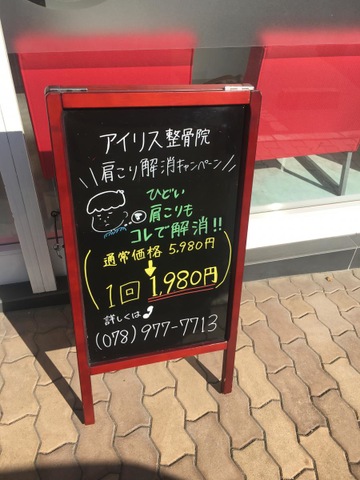 アイリス整骨院
\\肩こり解消キャンペーン//
ひどい
肩こりも
コレで解消!!
通常価格 5,980円
1回 1,980円
詳しくは
(078)977-7713